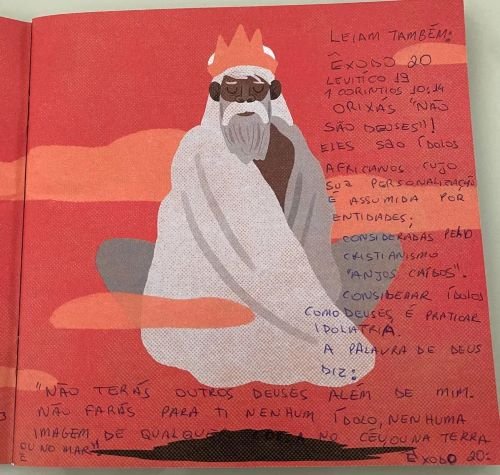 LEIAM TAMBÉM:
ÊXODO 20
LEVÍTICO 19
1 CORINTIOS 10:14
ORIXÁS "NÃO
SÃO DEUSES"!
ELES SÃO ÍDOLOS
AFRICANOS CUJO
SUA PERSONALIZAÇÃO
É ASSUMIDA POR
ENTIDADES,
CONSIDERADAS PELO
CRISTIANISMO
"ANJOS CAÍDOS".
CONSIDERAR ÍDOLOS
COMO DEUSES É PRATICAR
IDOLATRIA.
A PALAVRA DE DEUS
DIZ:
"NÃO TERÁS OUTROS DEUSES ALÉM DE MIM.
NÃO FARÁS PARA TI NENHUM ÍDOLO, NENHUMA
IMAGEM DE QUALQUER NO CÉU, OU NA TERRA
OU NO MAR"
ÊXODO 20: